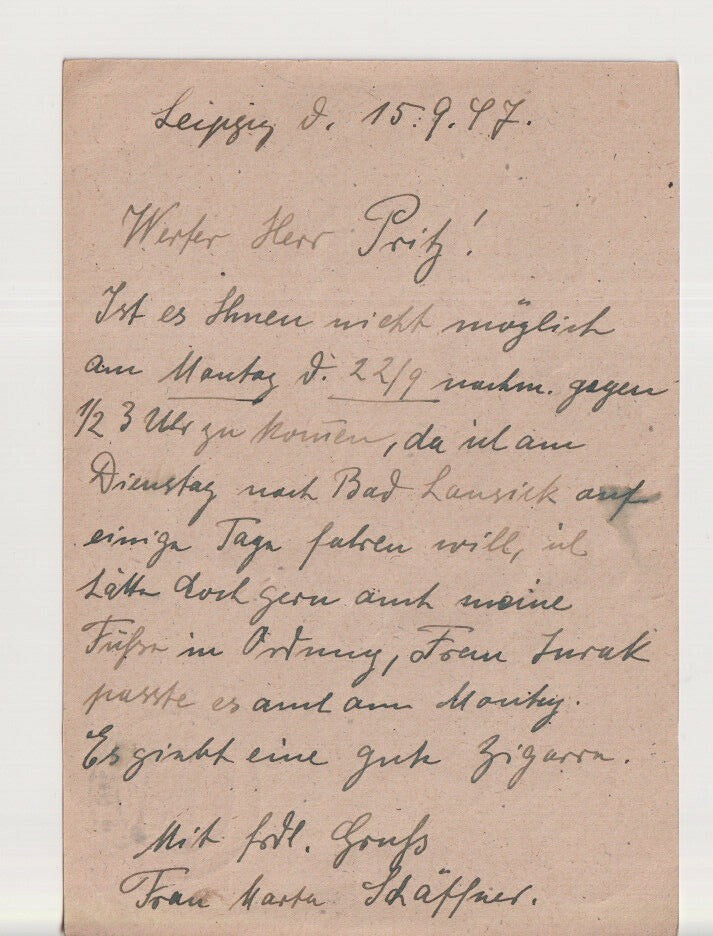 Leipzig d. 15.9.47.
Werter Herr Pritz!
Ist es Ihnen nicht möglich
am Montag d. 22/9 nachm. gegen
1/2 3 Uhr zu kom̄en, da ich am
Dienstag nach Bad Lausick auf
einige Tage fahren will, ich
hätte doch gern auch meine
Füße in Ordnung, Frau Jurak
passte es auch am Montag.
Es giebt eine gute Zigarre.
Mit frdl. Gruß
Frau Marta Schäffner.